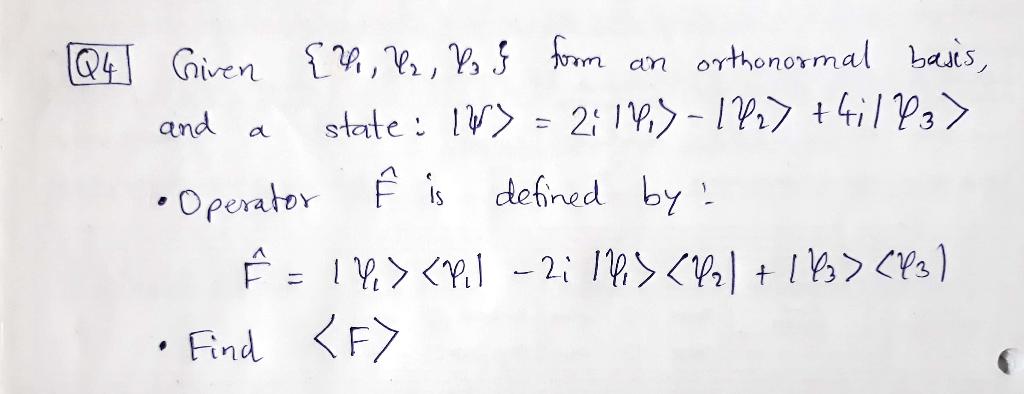 Q4 Given {φ₁, φ₂, φ₃} form an orthonormal basis,
and a state: |Ψ> = 2i |φ₁> - |φ₂> + 4i| φ₃>
• Operator F̂ is defined by:
F̂ = |φ₁> <φ₁| - 2i |φ₁> <φ₂| + |φ₃> <φ₃|
• Find <F>